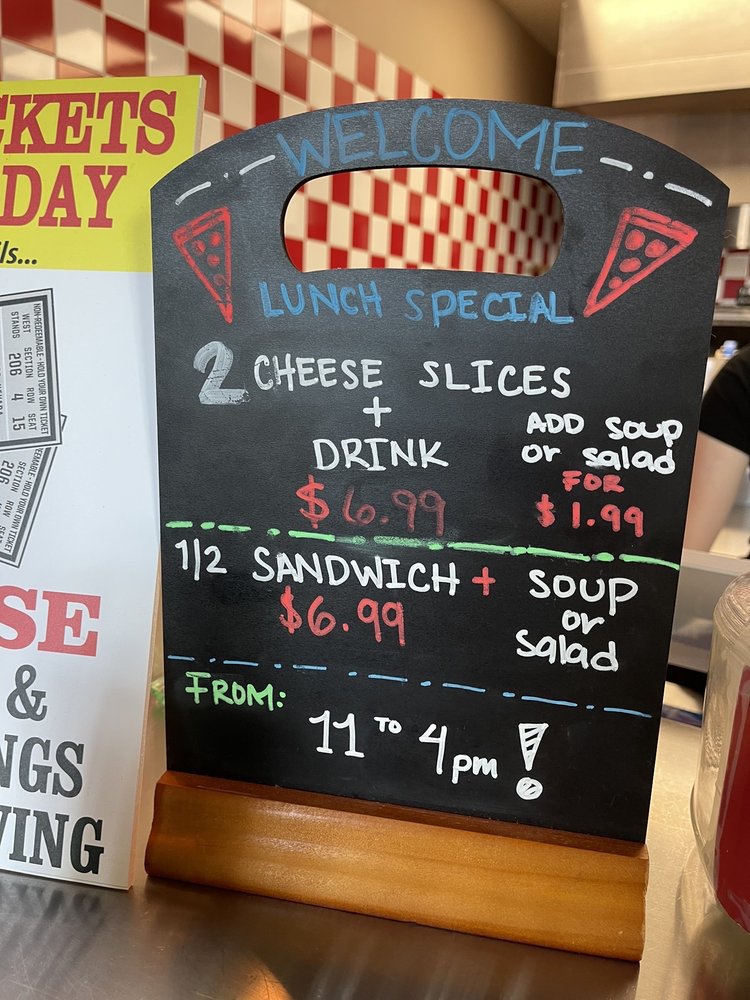 WELCOME
LUNCH SPECIAL
2 CHEESE SLICES
+
DRINK
$6.99
ADD soup
or salad
FOR
$1.99
1/2 SANDWICH + soup
or
salad
$6.99
FROM:
11 TO 4pm !
CKETS
DAY
ls...
NON-REDEEMABLE - HOLD YOUR OWN TICKET
WEST STANDS
SECTION 206
ROW 4
SEAT 15
SE
&
NGS
VING